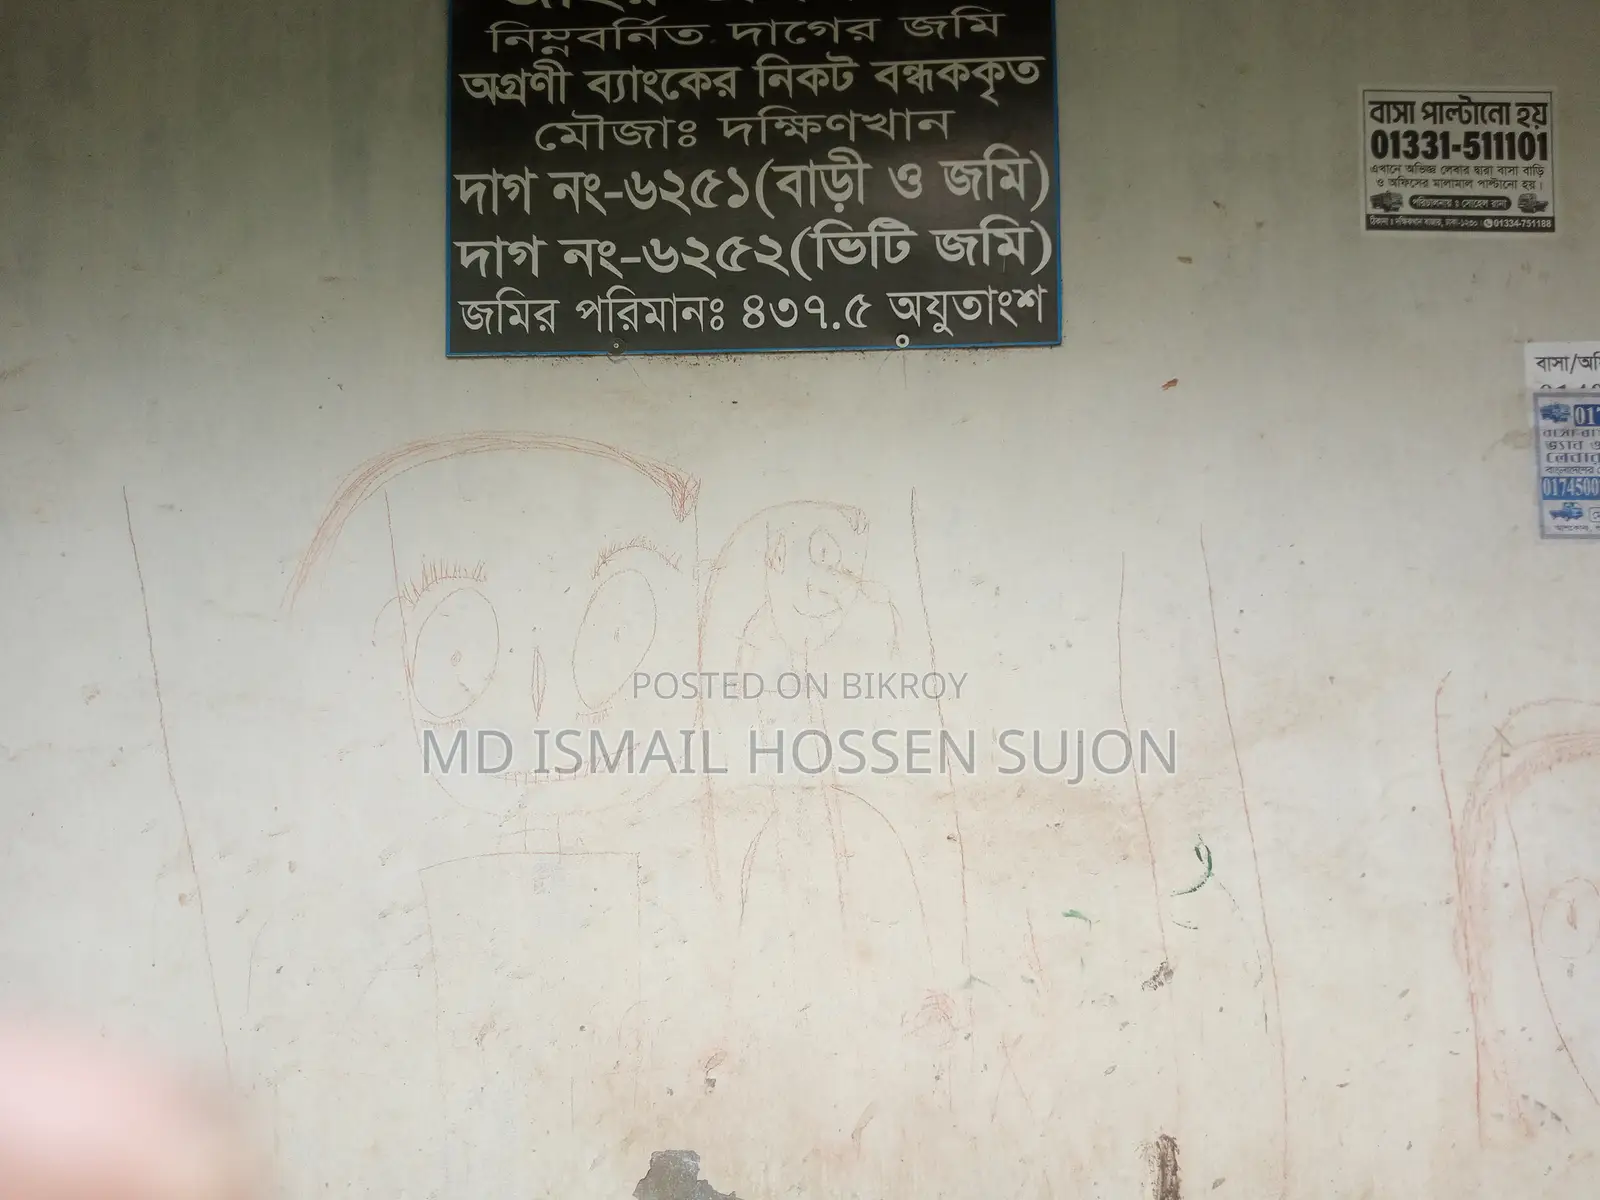 নিম্নবর্নিত দাগের জমি
অগ্রণী ব্যাংকের নিকট বন্ধককৃত
মৌজাঃ দক্ষিণখান
দাগ নং-৬২৫১(বাড়ী ও জমি)
দাগ নং-৬২৫২(ভিটি জমি)
জমির পরিমানঃ ৪৩৭.৫ অযুতাংশ
বাসা পাল্টানো হয়
01331-511101
এখানে অভিজ্ঞ লেবার দ্বারা বাসা বাড়ি
ও অফিসের মালামাল পাল্টানো হয়।
পরিচালনায় : সোহেল রানা
ঠিকানা : দক্ষিণখান বাজার, ঢাকা-১২৩০ 01334-751188
বাসা/অফি
017
লেবার
0174500
POSTED ON BIKROY
MD ISMAIL HOSSEN SUJON